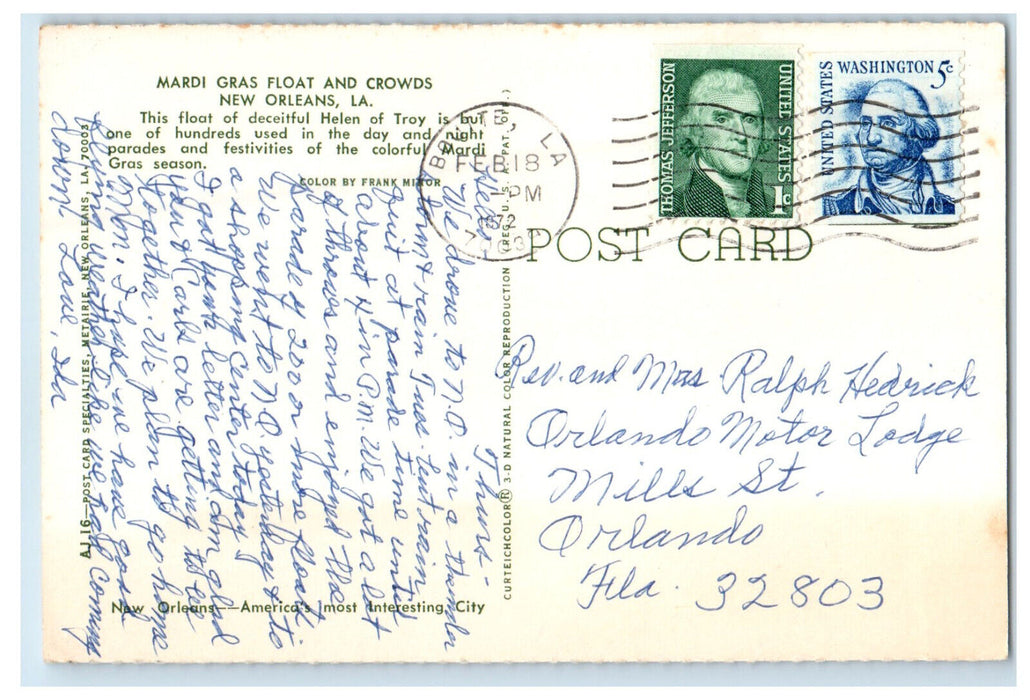 MARDI GRAS FLOAT AND CROWDS
NEW ORLEANS, LA.
This float of deceitful Helen of Troy is but
one of hundreds used in the day and night
parades and festivities of the colorful Mardi
Gras season.
COLOR BY FRANK MILTOR
Thurs-
We drove to N.O. in a thunder
storm & rain Tues. but rain
quit at parade time until
about 4 in P.M. We got a lot
of throws and enjoyed the
parade of 200 or more floats.
We went to N.O. yesterday & to
a shopping center today.
I got your letter and am glad
you & Carls are getting to be
together. We plan to go home
Mon. I hope we have good
weather like we had coming
down. Love, Ila
AJ.16—POST CARD SPECIALTIES, METAIRIE, NEW ORLEANS, LA. 70003
New Orleans—America's most Interesting City
CURTEICHCOLOR® 3-D NATURAL COLOR REPRODUCTION (REG. U.S.A. PAT. OFF.)
LA
FEB 18
PM
1972
THOMAS JEFFERSON
UNITED STATES
1c
UNITED STATES
WASHINGTON 5c
POST CARD
Rev. and Mrs Ralph Hedrick
Orlando Motor Lodge
Mills St.
Orlando
Fla. 32803